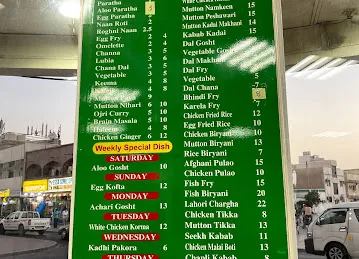 Paratha
Aloo Paratha 3
Egg Paratha
Naan Roti 2
Roghni Naan 2.5
Egg Fry
Omelette 2
Channa 3 5
Lubia 3 6
Chana Dal 3 5
Vegetable 3 5
Keema
Mutton Nihari 6 10
Ojri Curry 5 10
Brain Masala 5 10
Haleem 4 8
Chicken Ginger 6 12
Weekly Special Dish
SATURDAY
Aloo Gosht 5 10
SUNDAY
Egg Kofta 6 12
MONDAY
Achari Gosht 5 10
TUESDAY
White Chicken Korma 6 12
WEDNESDAY
Kadhi Pakora 6 12
THURSDAY
Mutton Namkeen 15
Mutton Peshawari 15
Mutton Kadai Makhni
Kabab Kadai
Dal Gosht
Vegetable Gosht
Dal Makhani
Dal Fry
Vegetable 5
Dal Chana 7
Bhindi Fry 8
Karela Fry
Chicken Fried Rice 12
Egg Fried Rice 10
Chicken Biryani 10
Mutton Biryani 13
Rice Biryani 7
Afghani Pulao 15
Chicken Pulao 10
Fish Fry 15
Fish Biryani 20
Lahori Chargha 22
Chicken Tikka 8
Mutton Tikka 13
Seekh Kabab 11
Chicken Malai Boti 13
Chapli Kabab